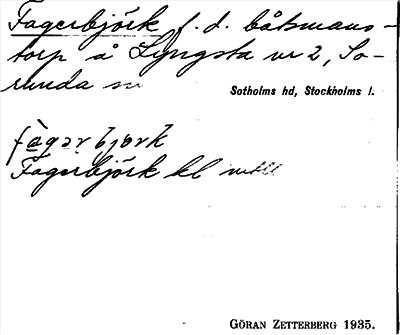 Fagerbjörk f. d. båtsmans-
torp å Lyngsta nr 2, So-
runda sn
Sotholms hd, Stockholms l.
Fagerbjörk kl
GÖRAN ZETTERBERG 1935.